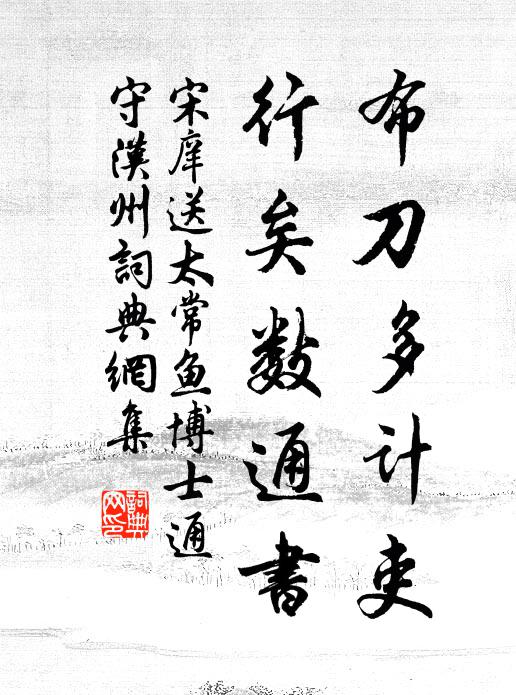 布刀多计吏
行矣数通書
宋庠送太常鱼博士通
守漢州詞典網集
詞典网印